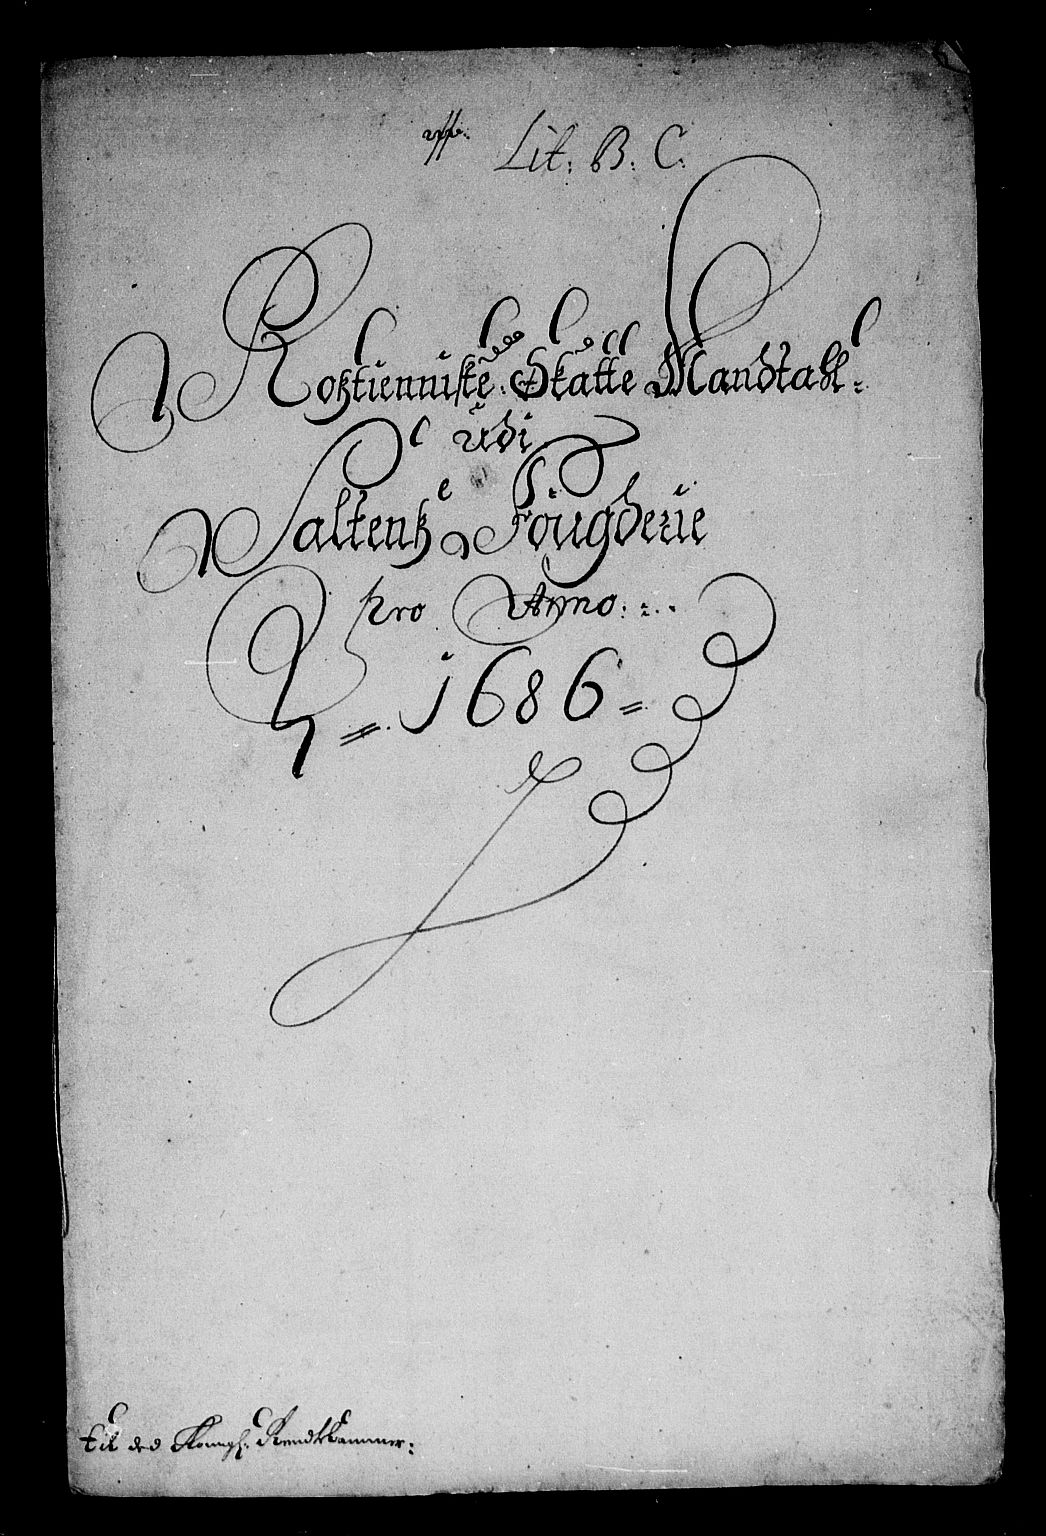 Lit: B: C:
Roßtienniste Skatte Mandtall
udi
Saltenß Fougderie
pro Anno
1686
til ded Kongl: Rendtkammer: